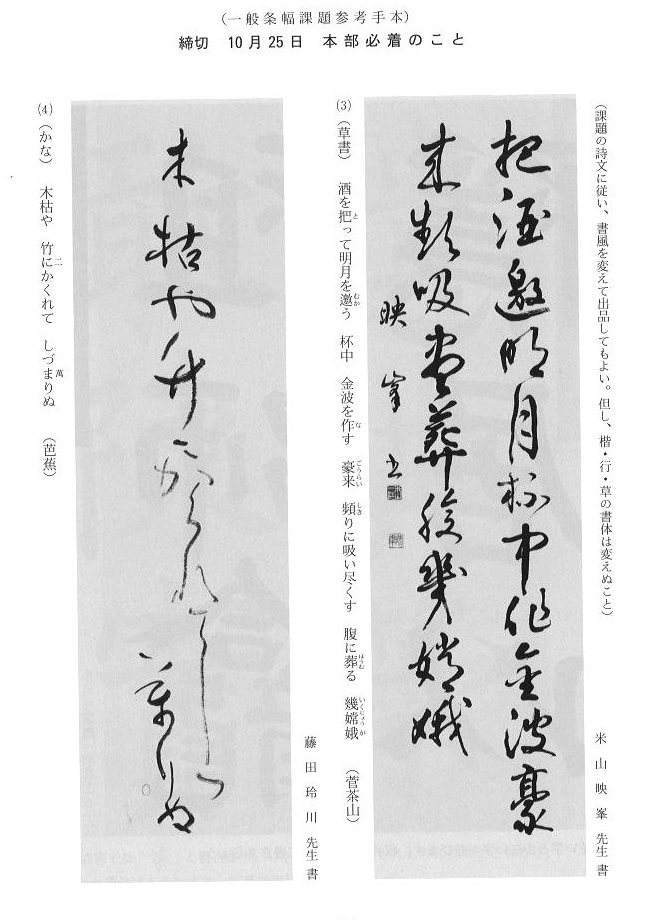 （一般条幅課題参考手本）
締切　10月25日　本部必着のこと
（課題の詩文に従い、書風を変えて出品してもよい。但し、楷・行・草の書体は変えぬこと）
米山映峯先生書
把酒邀明月杯中作金波豪
来頻吸尽葬腹幾嫦娥
映峯書
(3)（草書）　酒を把って明月を邀う　杯中　金波を作す　豪来　頻りに吸い尽くす　腹に葬る　幾嫦娥　（菅茶山）
と　むか　な　ごうらい　しき　ほうむ　いくじょうが
藤田玲川先生書
木枯や竹二かくれて
し づ萬りぬ
(4)（かな）　木枯や　竹にかくれて　しづまりぬ　（芭蕉）
二　萬